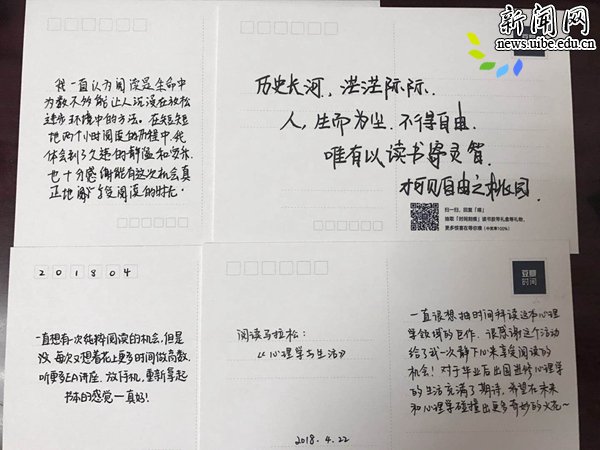 新闻网
news.uibe.edu.cn
我一直认为阅读是生命中
为数不多能让人沉浸在放松
进步环境中的方法。在短短
地两个小时阅读的历程中,我
体会到了久违的静谧和安详
也十分感谢能有这次机会真
正地感受阅读的时光.
历史长河,茫茫际际.
人,生而为尘.不得自由.
唯有以读书得灵智.
才可见自由之桃园.
扫一扫,回复「嗨」
抽取「时间刻度」读书胶带礼盒等礼物,
更多惊喜在等你噢(中奖率100%)
201804
一直想有一次纯粹阅读的机会,但是
没 每次又想着花上更多时间做高数,
听更多EA讲座.放下手机,重新拿起
书本的感觉一真好!
阅读马拉松:
《心理学与生活》
2018.4.22
亚马逊
时间
一直很想抽时间拜读这本心理
学领域的巨作.很感谢这个活动
给了我一次静下心来享受阅读的
机会!对于毕业后出国进修心理学
的生活充满了期待,希望在未来
和心理学碰撞出更多奇妙的火花~